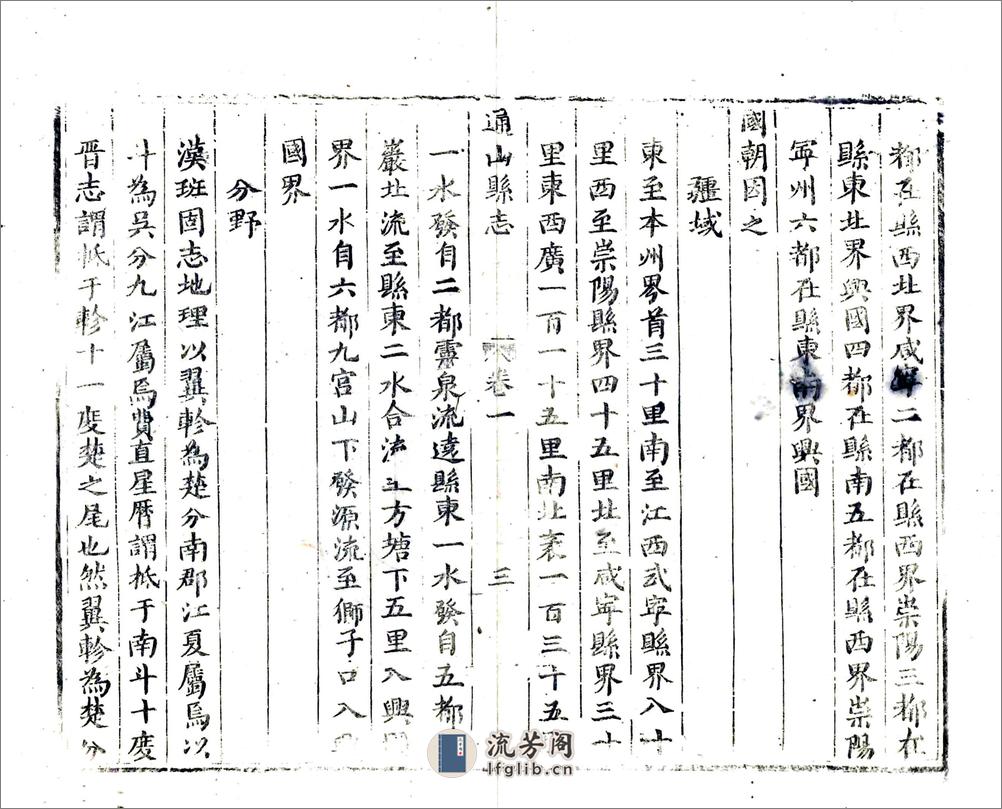 都在縣西北界咸寧二都在縣西界崇陽三都在
縣東北界興國四都在縣南五都在縣西界崇陽
寧州六都在縣東南界興國
國朝因之
疆域
東至本州界首三十里南至江西武寧縣界八十
里西至崇陽縣界四十五里北至咸寧縣界三十
里東西廣一百一十五里南北袤一百三十五
通山縣志
卷一
三
一水發自二都靈泉流遶縣東一水發自五都
巖北流至縣東二水合流 方塘下五里入興
界一水自六都九宮山下發源流至獅子口入
國界
分野
漢班固志地理以翼軫為楚分南郡江夏屬焉以
斗為吳分九江屬焉費直星曆謂抵于南斗十度
晋志謂抵于軫十一度楚之尾也然翼軫為楚分
流芳阁
lfglib.cn